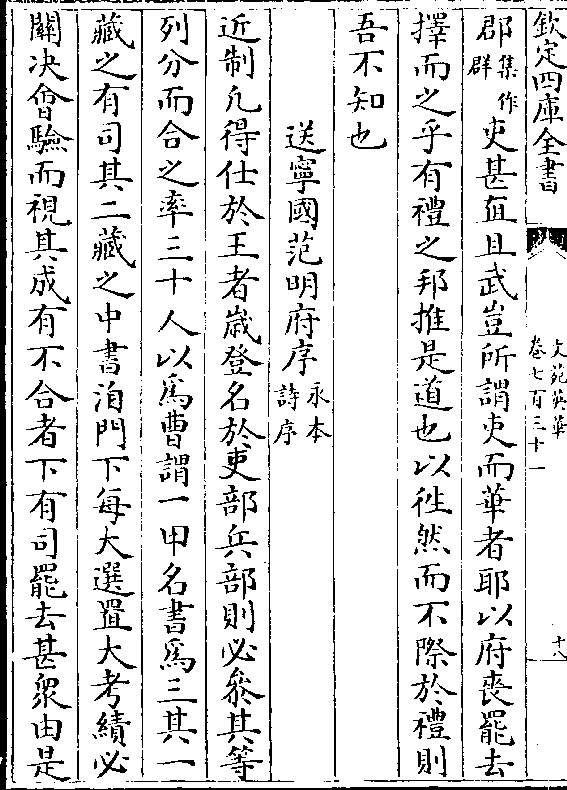 欽定四庫全書
文苑英華
卷七百三十一
十八
郡集作群吏甚直且武豈所謂吏而華者耶以府喪罷去
擇而之乎有禮之邦推是道也以徃然而不際於禮則
吾不知也
送寧國范明府序永本詩序
近制凡得仕於王者歲登名於吏部兵部則必叅其等
列分而合之率三十人以為曹謂一甲名書為三其一
藏之有司其二藏之中書洎門下每大選置大考績必
關決㑹驗而視其成有不合者下有司罷去甚衆由是